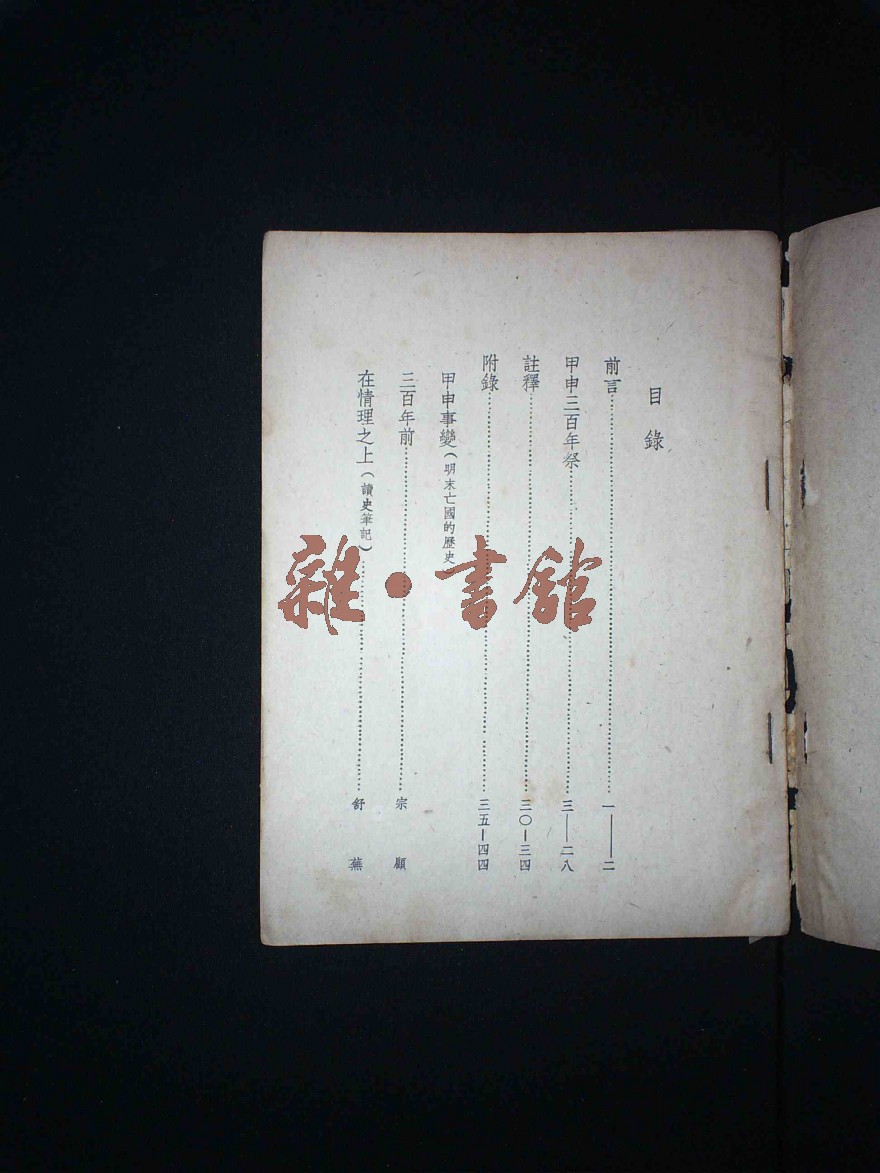 目錄
前言……一——二
甲申三百年祭……三——二八
註釋……三〇—三四
附錄……三五—四四
甲申事變（明末亡國的歷史）
三百年前……宗顧
在情理之上（讀史筆記）……舒蕪
雜·書館